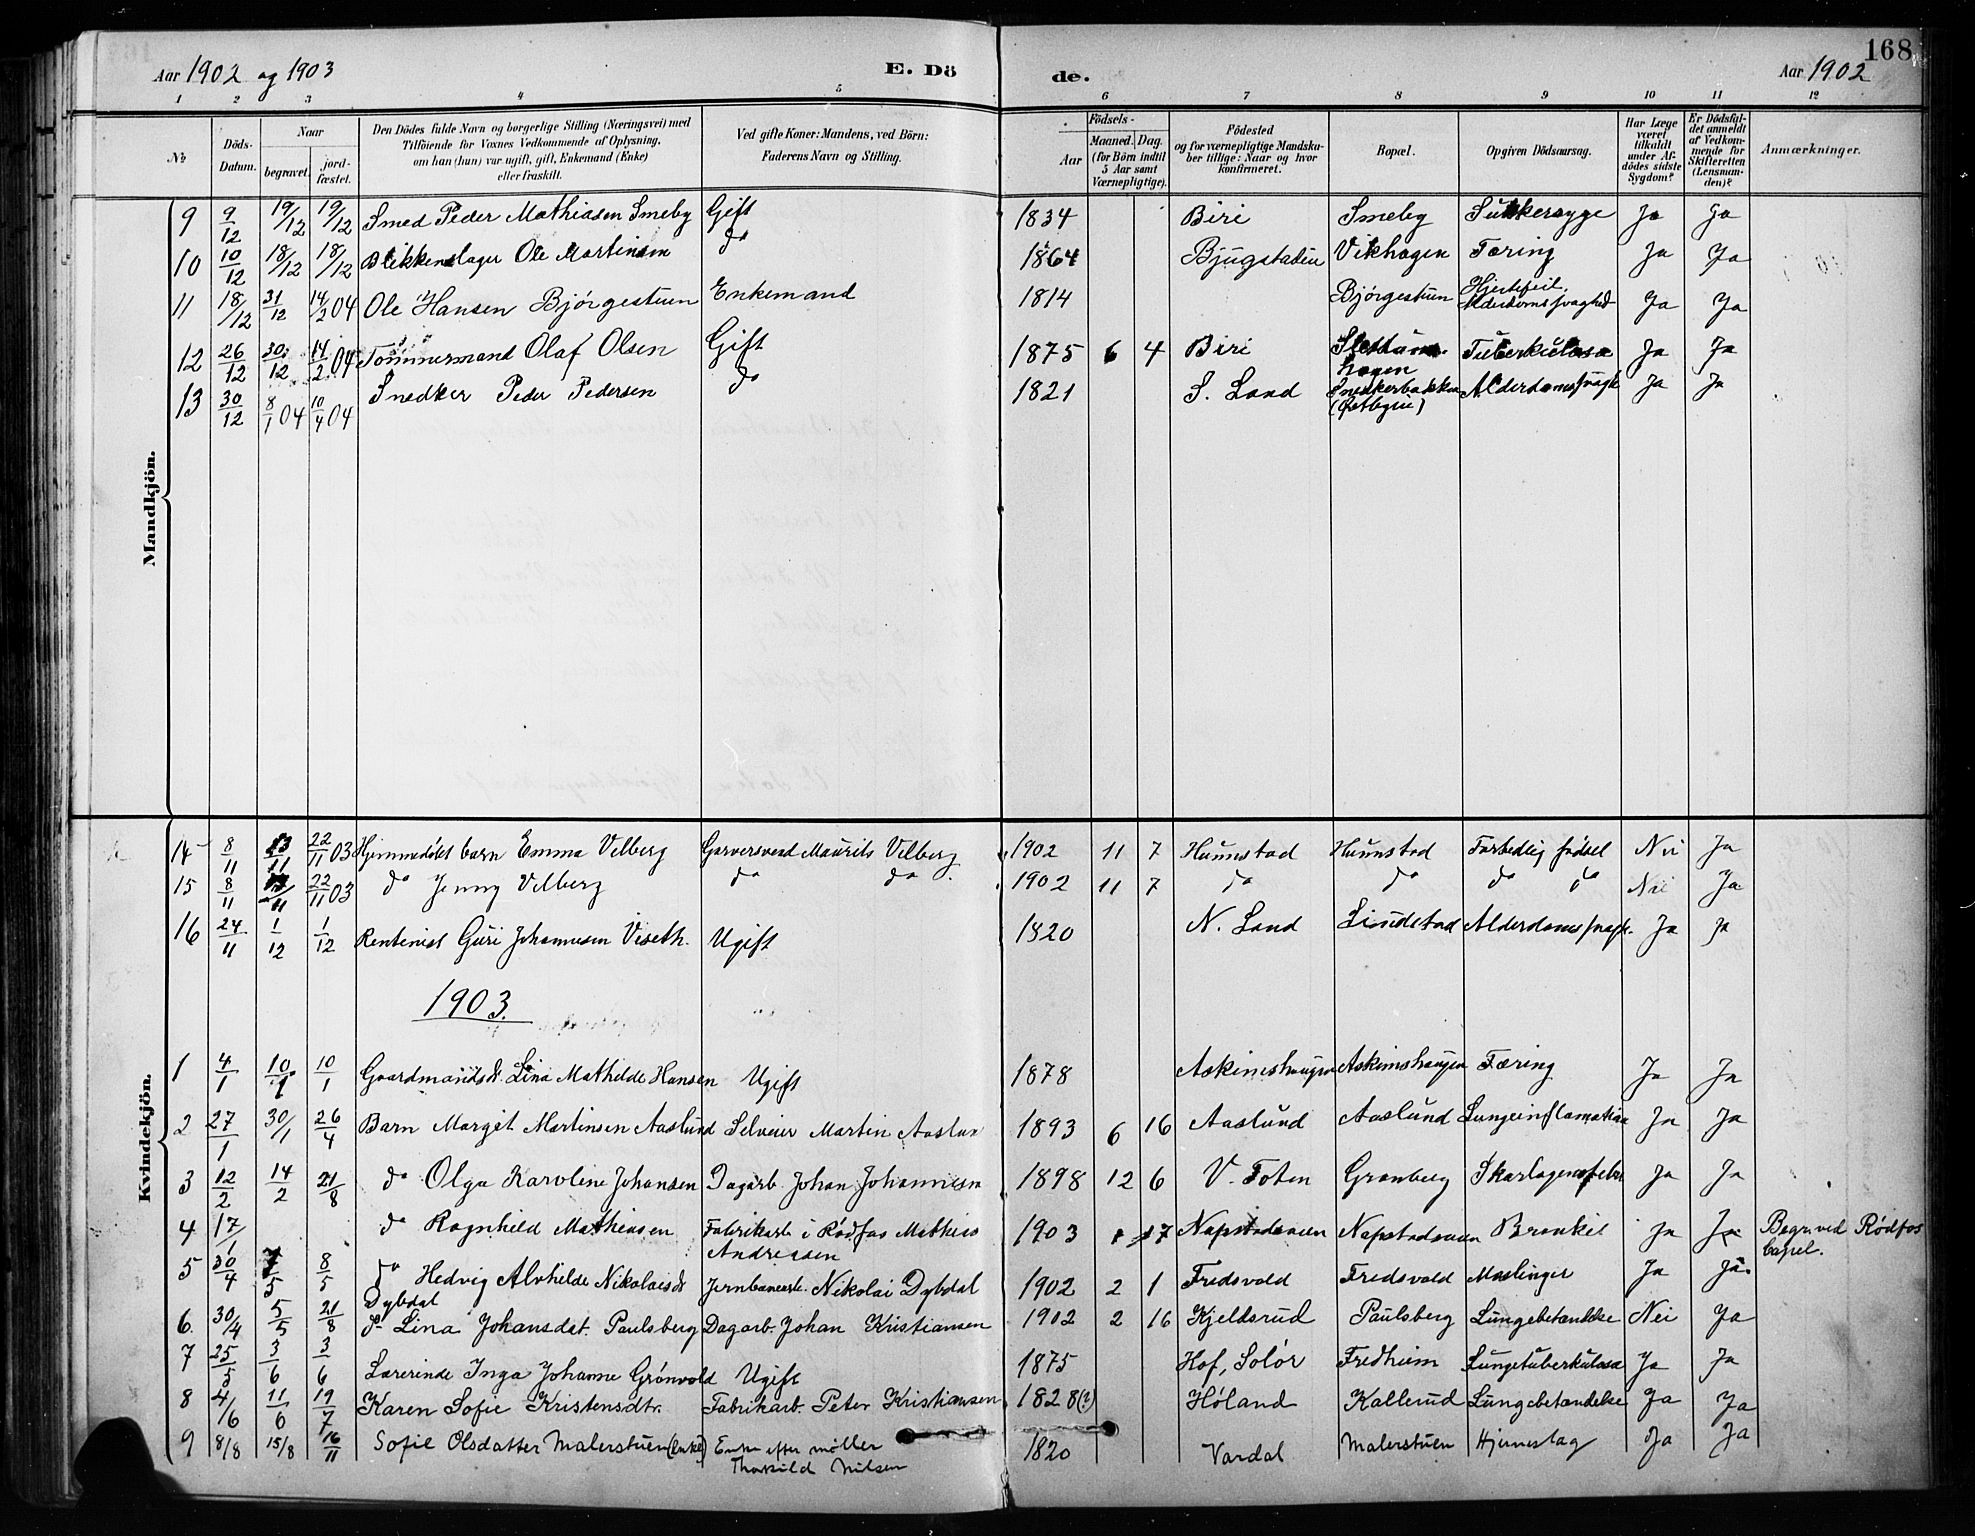 168
Aar 1902 og 1903 E. Dö de. Aar 1902
1 2 3 4 5 6 7 8 9 10 11 12
No
Döds-Datum.
Naar
begravet.
jord-fæstet.
Den Dödes fulde Navn og borgerlige Stilling (Næringsvei) med
Tilföiende for Voxnes Vedkommende af Oplysning,
om han (hun) var ugift, gift, Enkemand (Enke)
eller fraskilt.
Ved gifte Koner: Mandens, ved Börn:
Faderens Navn og Stilling.
Födsels-
Aar
Maaned. Dag.
(for Börn indtil
5 Aar samt
Værnepligtige).
Födested
og for værnepligtige Mandska-
ber tillige: Naar og hvor
konfirmeret.
Bopæl.
Opgiven Dödsaarsag.
Har Læge
været
tilkaldt
under Af-
dödes sidste
Sygdom?
Er Dödsfal-
det anmeldt
af Vedkom-
mende for
Skifteretten
(Lensman-
den)?
Anmærkninger.
Mandkjön.
9 9/12 19/12 19/12 Smed Peder Mathiasen Smeby Gift 1834 Biri Smeby Sukkersyge Ja Ja
10 10/12 18/12 18/12 Blikkenslager Ole Martinsen do 1864 Bjugstadeie Vikhagen Tæring Ja Ja
11 18/12 31/12 14/2 04 Ole Hansen Bjørgestuen Enkemand 1814 Bjørgestuen Hjertefeil. Alderdomssvaghed Ja Ja
12 26/12 30/12 14/2 04 Tømmermand Olaf Olsen Gift 1875 6 4 Biri hagen Tuberkulose Ja Ja
13 30/12 8/1 04 10/4 04 Snedker Peder Pedersen do 1821 S. Land Snedkerbakken Alderdomssvagh Ja Ja
Kvindekjön.
14 8/11 13/11 22/11 03 Hjemmedøbt barn Emma Velberg Garversvend Maurits Velberg 1902 11 7 Hunnstad Hunnstad Forhedlig fødsel Nei Ja
15 8/11 22/11 03 do Jenny Velberg do do 1902 11 7 do do do do Nei Ja
16 24/11 1/12 1/12 Rentenist Guri Johannesen Viseth. Ugift 1820 N. Land Lindstad Alderdomssvagh. Ja Ja
1903.
1 4/1 10/1 10/1 Gaardmandsdt. Lina Mathilde Hansen Ugift 1878 Askimshaugen Askimshaugen Tæring Ja Ja
2 27/1 30/1 26/4 Barn Margit Martinsen Aaslund Selveier Martin Aaslun 1893 6 16 Aaslund Aaslund Lungeinflamation Ja Ja
3 12/2 14/2 21/8 do Olga Karoline Johansen Dagarb. Johan Johannesen 1898 12 6 V. Toten Granberg Skarlagensfeber Ja Ja
4 17/1 do Ragnhild Mathiasen Fabrikarb i Rødfos Mathias Andreasen 1903 1 17 Bronkit Ja Ja Begr. ved Rødfos Capel.
5 30/4 7/5 8/5 do Hedvig Alvhilde Nikolaisdt Dybdal Jernbanearb. Nikolai Dybdal 1902 2 1 Fredsvold Fredsvold Meslinger Ja Ja.
6. 30/4 5/5 21/8 do Lina Johansdat. Paulsberg Dagarb. Johan Kristiansen 1902 2 16 Kjeldsrud Paulsberg Lungebetændelse Nei Ja
7 25/5 3/6 3/6 Lærerinde Inga Johanne Grønvold Ugift 1875 Hof, Solør Fredheim Lungetuberkulose Ja Ja
8 4/6 11/6 19/7 Karen Sofie Kristensdtr. Fabrikarb. Peter Kristiansen 1828(?) Høland Kallerud Lungebetændelse Ja Ja
9 8/8 15/8 16/11 Sofie Olsdatter Malerstuen (Enke) Enke efter møller Thorkild Nilsen 1820 Vardal Malerstuen Hjerneslag Ja Ja